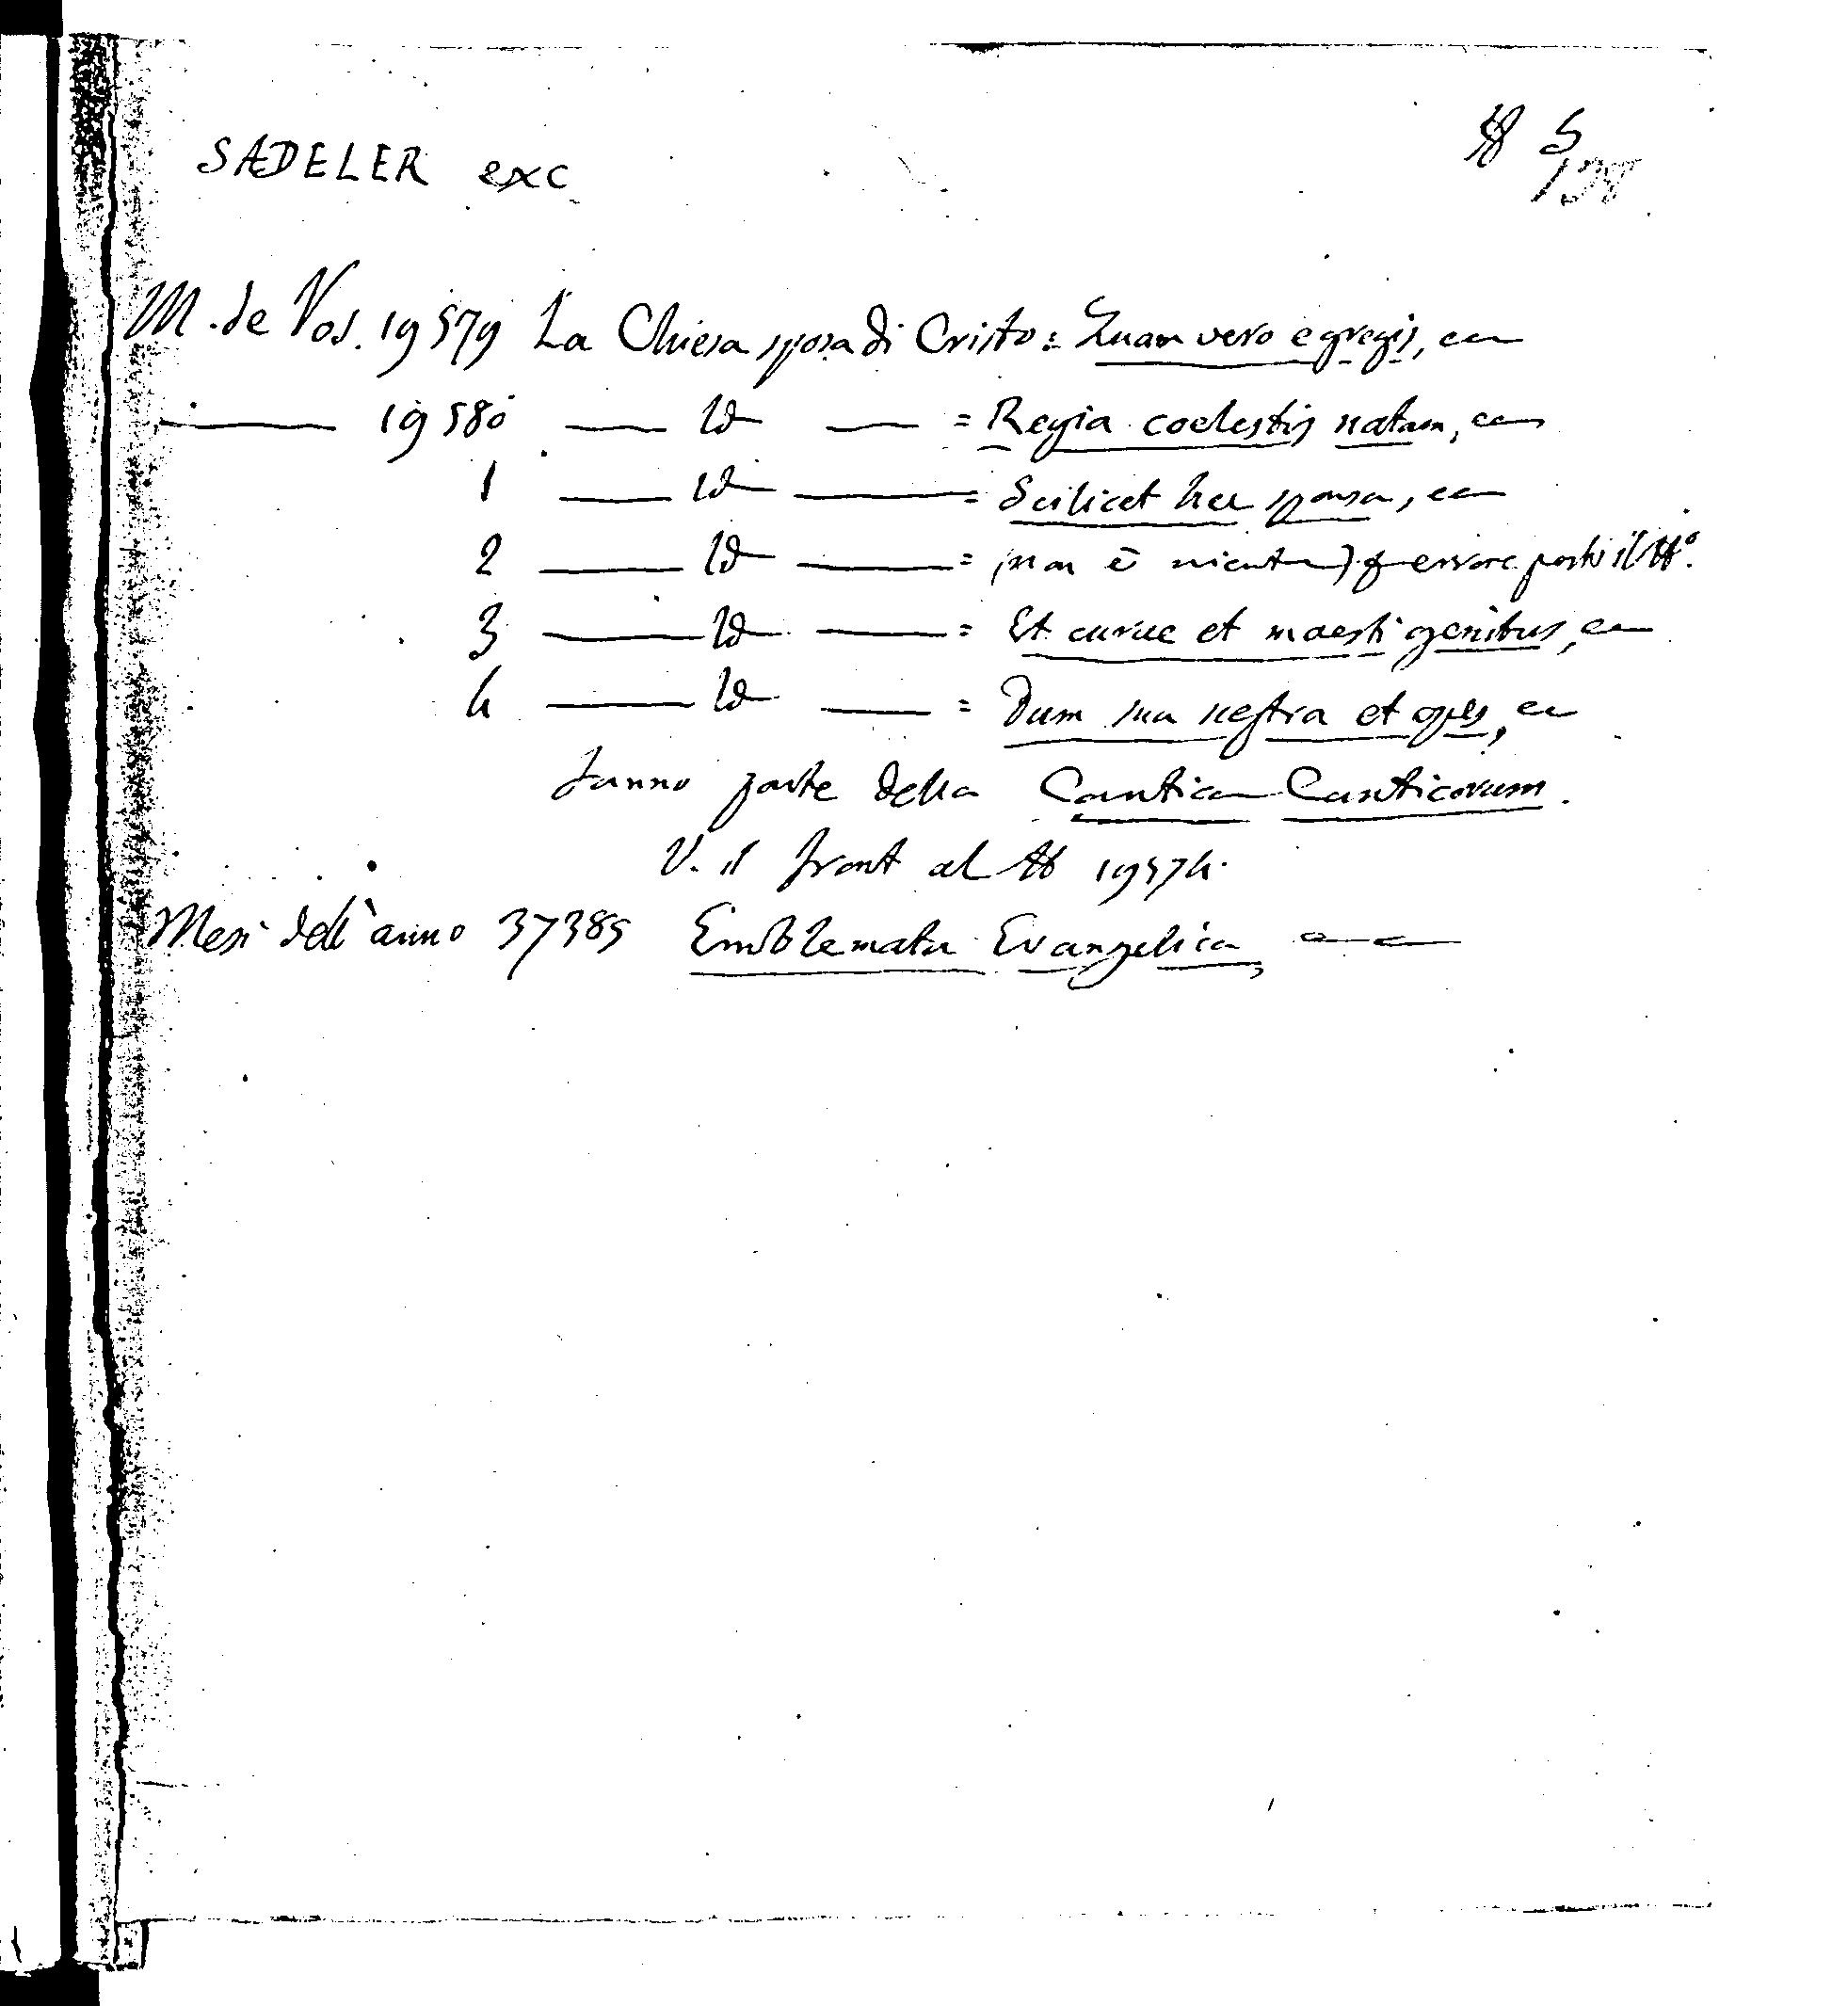 S
138
SADELER exc
M. de Vos. 19579 La Chiesa sposa di Cristo = Quam vero egregis, ecc
——— 19580 —— Id —— = Regia coelestis natam, ecc
1 —— Id ——— = Scilicet hec sponsa, ecc
2 ——— Id ——— = (non è niente) per errore posto il No.
3 ——— Id ——— = Et curve et maesti genibus, ecc
4 ——— Id —— = Dum sua nostra et opes, ecc
fanno parte della Cantica Canticorum.
V. il front al N 19574.
Mesi dell'anno 37389 Emblemata Evangelica, ——